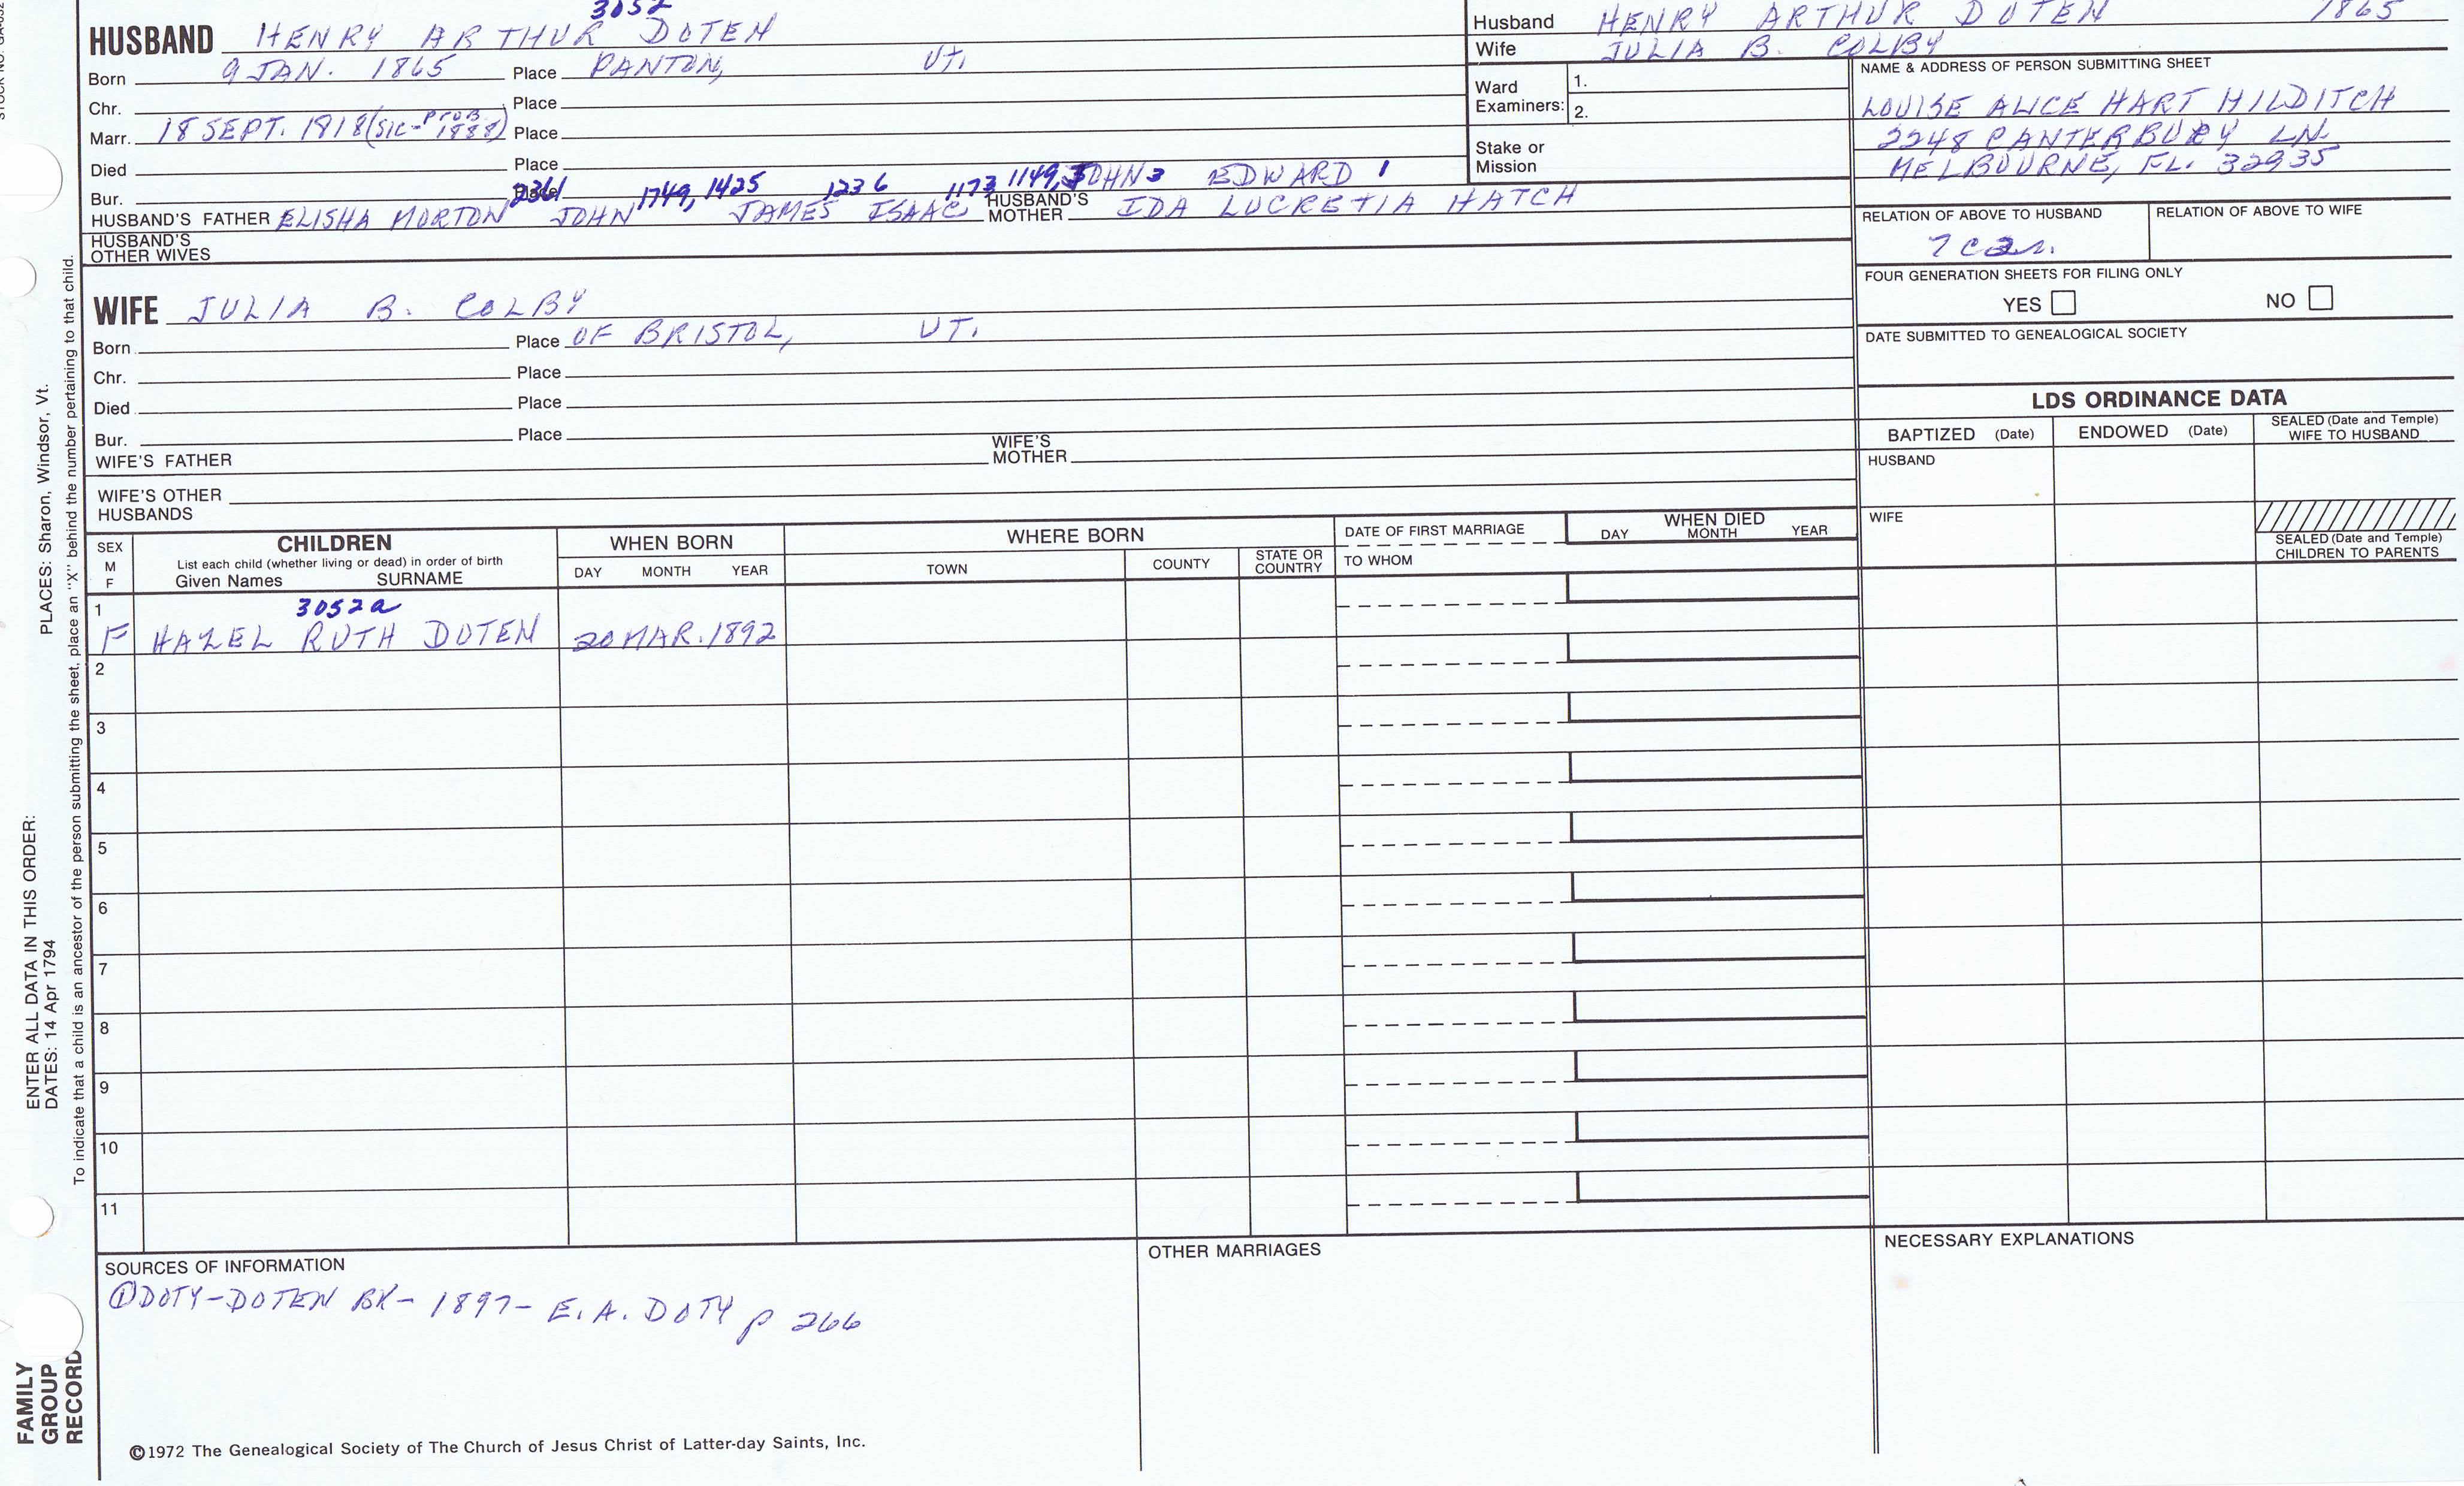 3052
HUSBAND HENRY ARTHUR DOTEN
Born 9 JAN. 1865 Place PANTON, VT.
Chr. Place
Marr. 18 SEPT. 1918 (SIC-PROB 1888) Place
Died Place
Bur. Place 2361 1749, 1425 1236 1173, 1149, JOHN 3 EDWARD 1
HUSBAND'S FATHER ELISHA MORTON JOHN JAMES ISAAC HUSBAND'S MOTHER IDA LUCRETIA HATCH
HUSBAND'S OTHER WIVES
WIFE JULIA B. COLBY
Born Place OF BRISTOL, VT.
Chr. Place
Died Place
Bur. Place
WIFE'S FATHER WIFE'S MOTHER
WIFE'S OTHER HUSBANDS
Husband HENRY ARTHUR DOTEN 1865
Wife JULIA B. COLBY
Ward Examiners: 1.
2.
Stake or Mission
NAME & ADDRESS OF PERSON SUBMITTING SHEET
LOUISE ALICE HART HILDITCH
2248 CANTERBURY LN.
MELBOURNE, FL. 32935
RELATION OF ABOVE TO HUSBAND RELATION OF ABOVE TO WIFE
FOUR GENERATION SHEETS FOR FILING ONLY
YES NO
DATE SUBMITTED TO GENEALOGICAL SOCIETY
LDS ORDINANCE DATA
BAPTIZED (Date) ENDOWED (Date) SEALED (Date and Temple) WIFE TO HUSBAND
HUSBAND
WIFE
SEALED (Date and Temple) CHILDREN TO PARENTS
SEX M F
CHILDREN
List each child (whether living or dead) in order of birth
Given Names SURNAME
WHEN BORN
DAY MONTH YEAR
WHERE BORN
TOWN COUNTY STATE OR COUNTRY
DATE OF FIRST MARRIAGE
TO WHOM
WHEN DIED
DAY MONTH YEAR
1 3052a
F HAZEL RUTH DOTEN 20 MAR. 1892
2
3
4
5
6
7
8
9
10
11
SOURCES OF INFORMATION
① DOTY-DOTEN BK- 1897- E.A. DOTY p 266
OTHER MARRIAGES
NECESSARY EXPLANATIONS
©1972 The Genealogical Society of The Church of Jesus Christ of Latter-day Saints, Inc.
FAMILY GROUP RECORD
ENTER ALL DATA IN THIS ORDER:
DATES: 14 Apr 1794
PLACES: Sharon, Windsor, Vt.
To indicate that a child is an ancestor of the person submitting the sheet, place an "X" behind the number pertaining to that child.